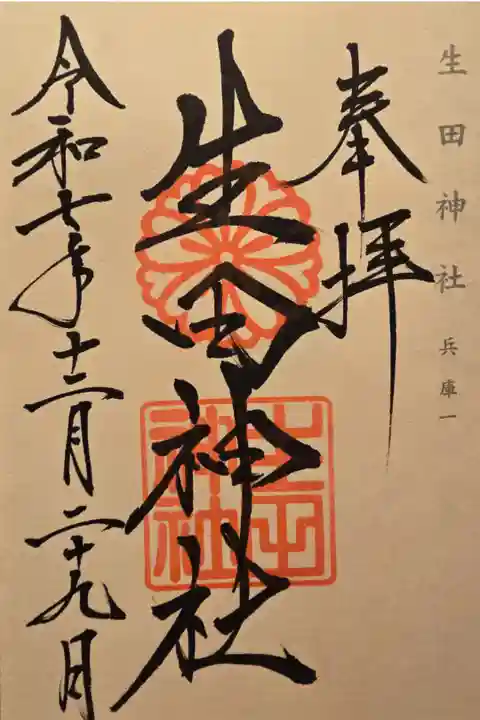 生田神社 兵庫一
奉拝
生田神社
生田神社
令和七年十二月二十九日